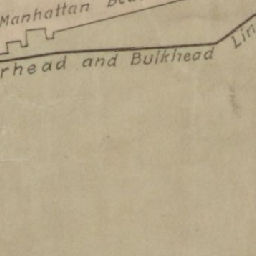 Manhattan
rhead and Bulkhead Lin